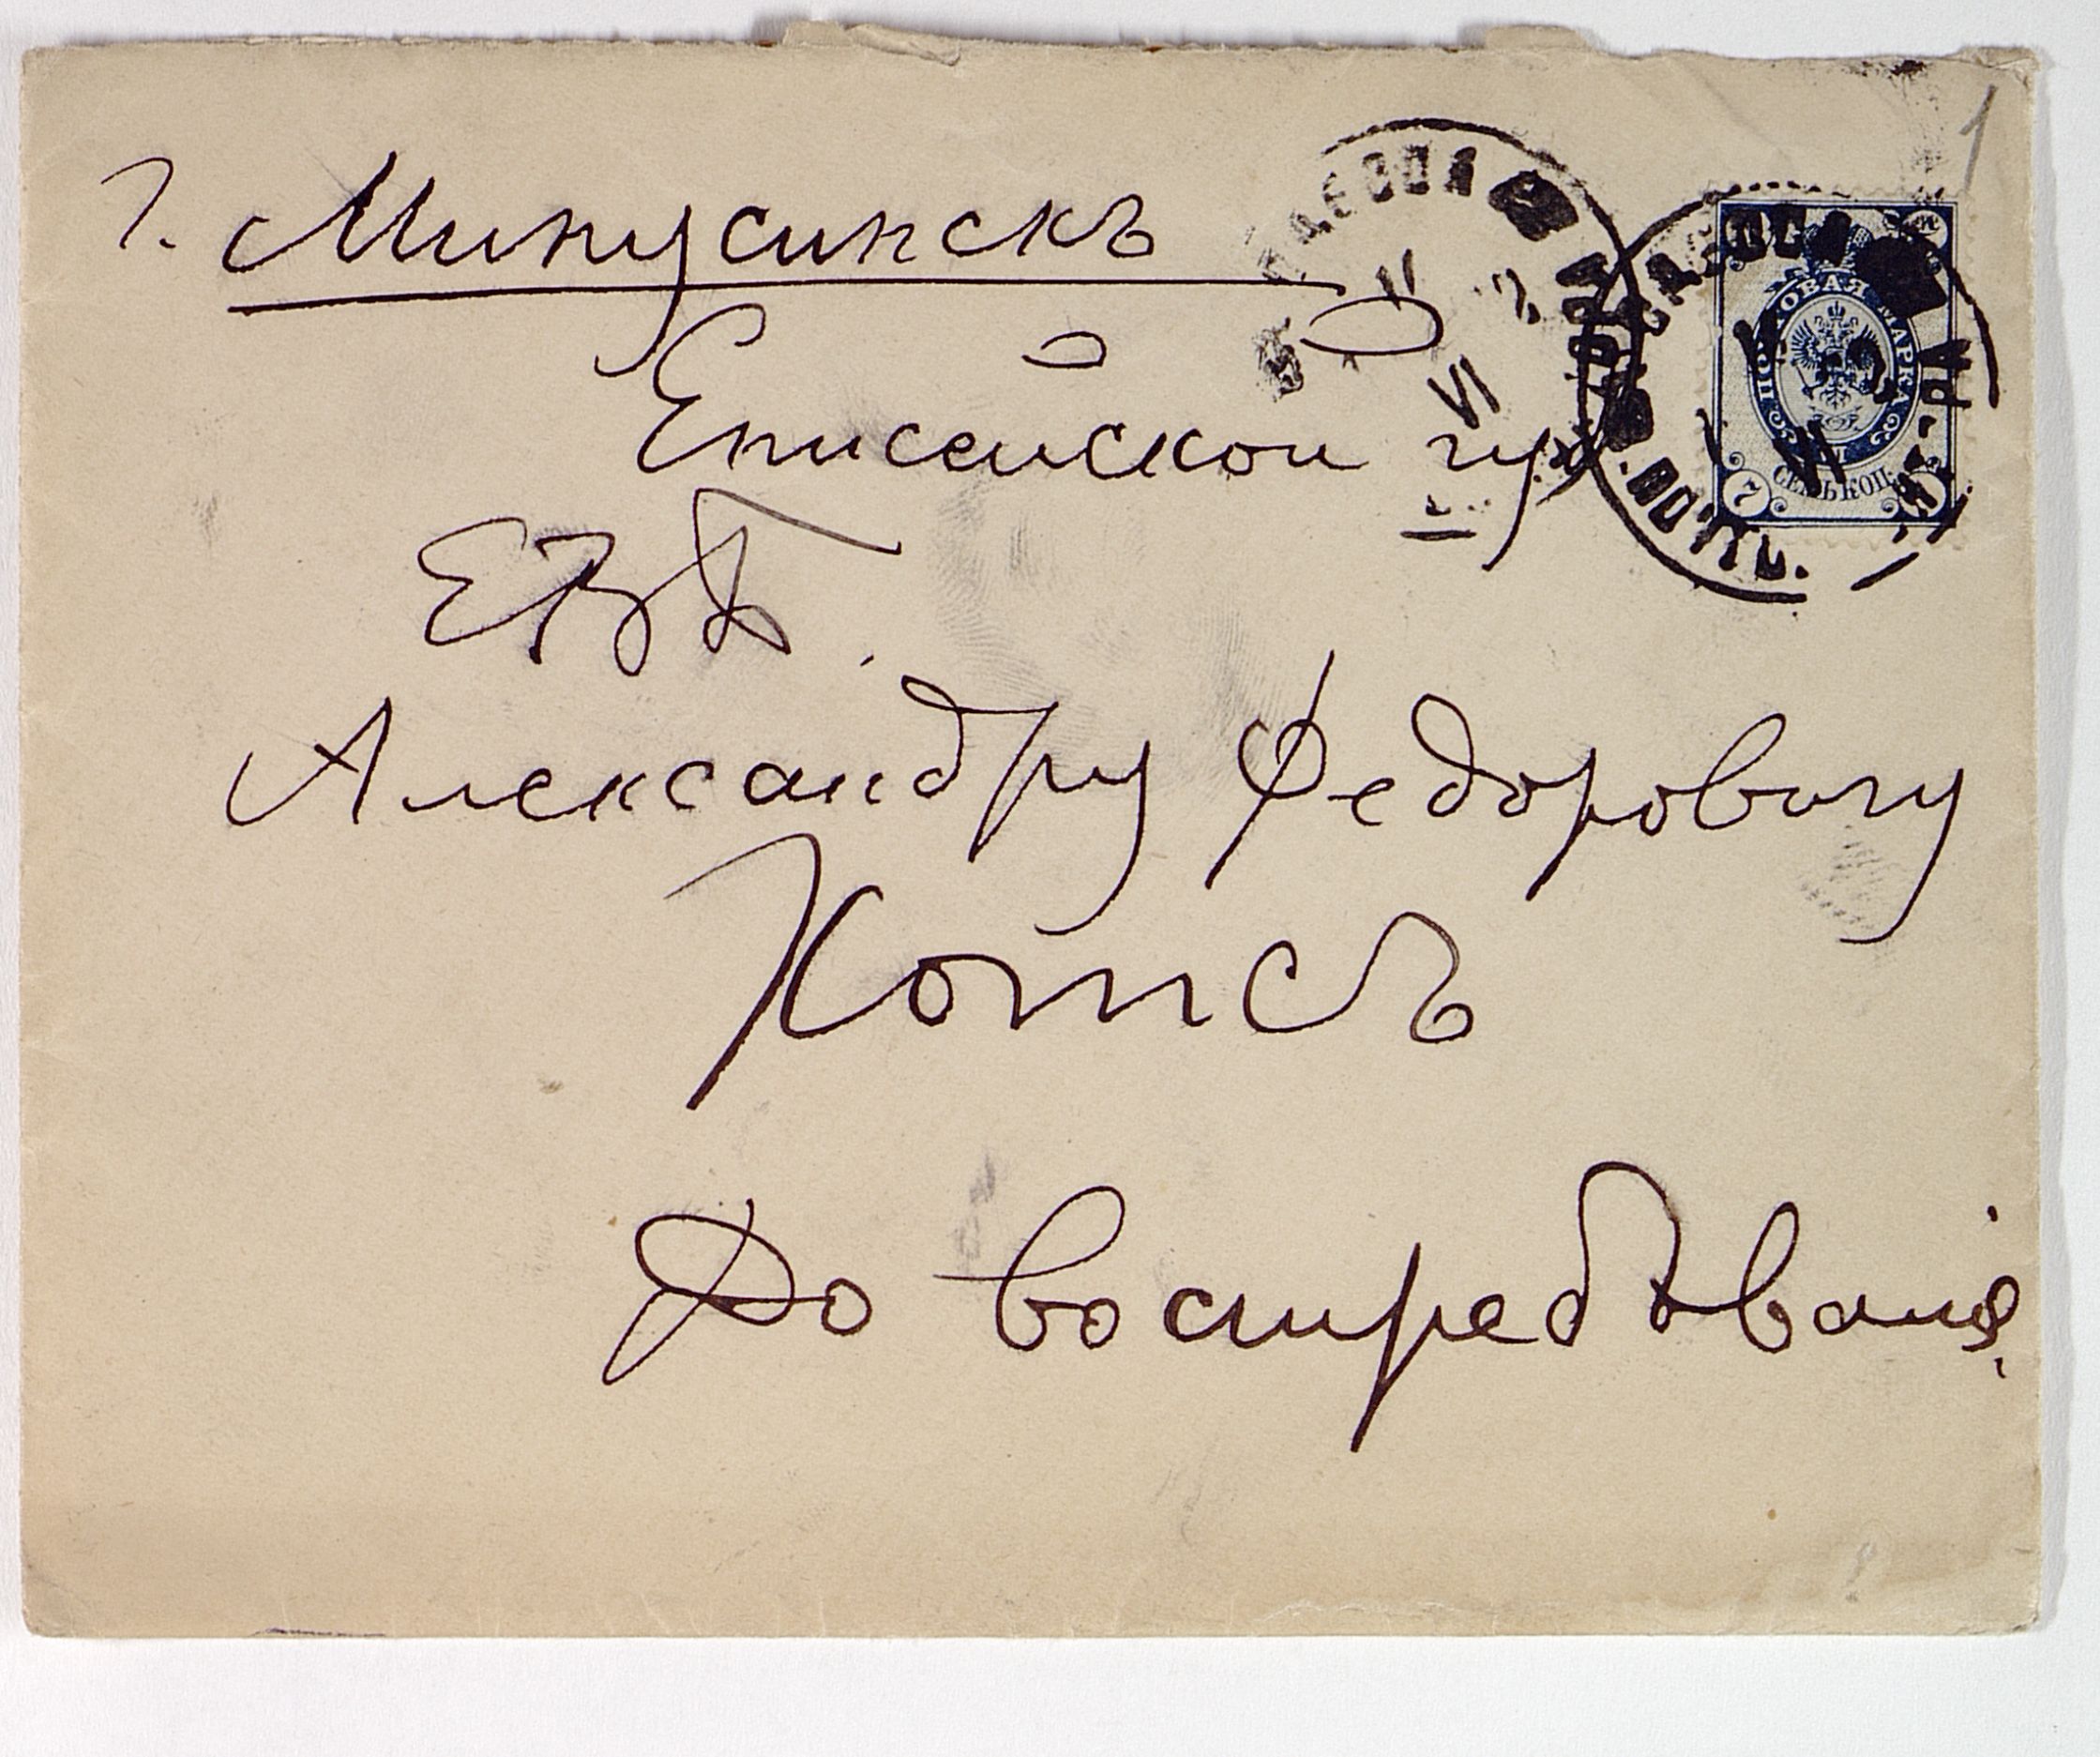 г. Минусинскъ
Енисейской губ
ЕВБ.
Александру Федоровичу
Котсъ
До востребованія
ПОЧТОВАЯ МАРКА
СЕМЬ КОП.
7
1